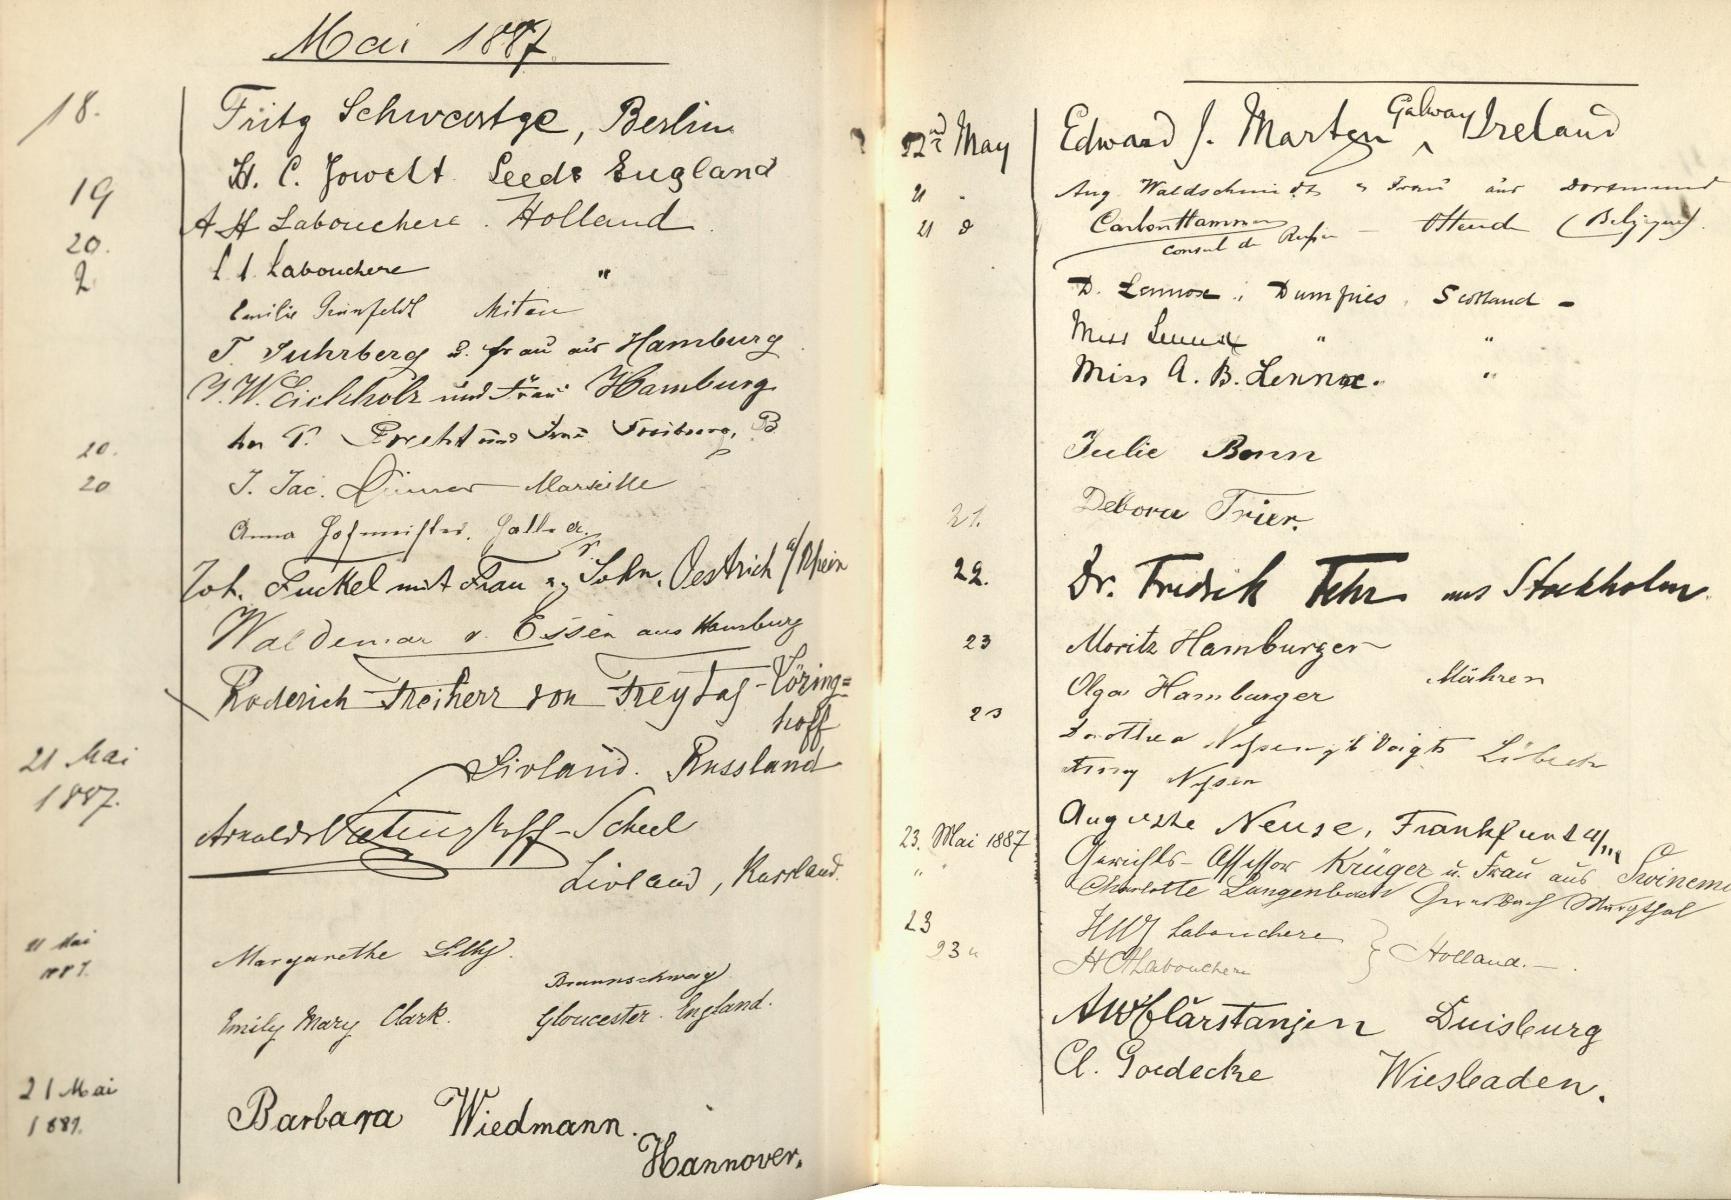 Mai 1887.
18. Fritz Schwartze, Berlin
H. C. Jowett Leeds England
19 A H Labouchere. Holland
20. Labouchere "
2
Emilie Grünfeldt Mitau
T Fuhrberg u. frau aus Hamburg
J. W. Eichholz und Frau Hamburg
20. und Frau Freiburg, B
20 J. Jac. Marseille
Anna Hofmeister, Halle a.
Joh. Fuckel mit Frau u. Sohn, Oestrich a/Rhein
Waldemar v. Essen aus Hamburg
Roderich Freiherr von Freytag-Löring=
hoff
21 Mai Livland. Russland
1887.
Arnold Vietinghoff-Scheel
Livland, Russland.
21 Mai
1887. Margarethe Lilly.
Braunschweig
Emily Mary Clark. Gloucester. England.
21 Mai
1887. Barbara Wiedmann.
Hannover.
22nd May Edward J. Martyn Galway Ireland
21 " Aug Waldschmidt u Frau aus Dortmund
21 Ostende (Belgique).
consul de Russie
D. Lennox, Dumfries, Scotland -
Miss Lennox " "
Miss A. B. Lennox. "
Julie Bonn
21. Debora Trier.
22. Dr. Fredrik Fehr aus Stockholm.
23 Moritz Hamburger
Mähren
Olga Hamburger
23 Dorothea Voigt Lübeck
Auguste Neuse, Frankfurt a/m
23. Mai 1887 Gerichts-Assessor Krüger u. Frau aus
" Charlotte Langenbach Gernsbach Murgthal
23 Labouchere } Holland. -
23 " Labouchere
Clarstanjen Duisburg
Cl. Goedecke Wiesbaden.